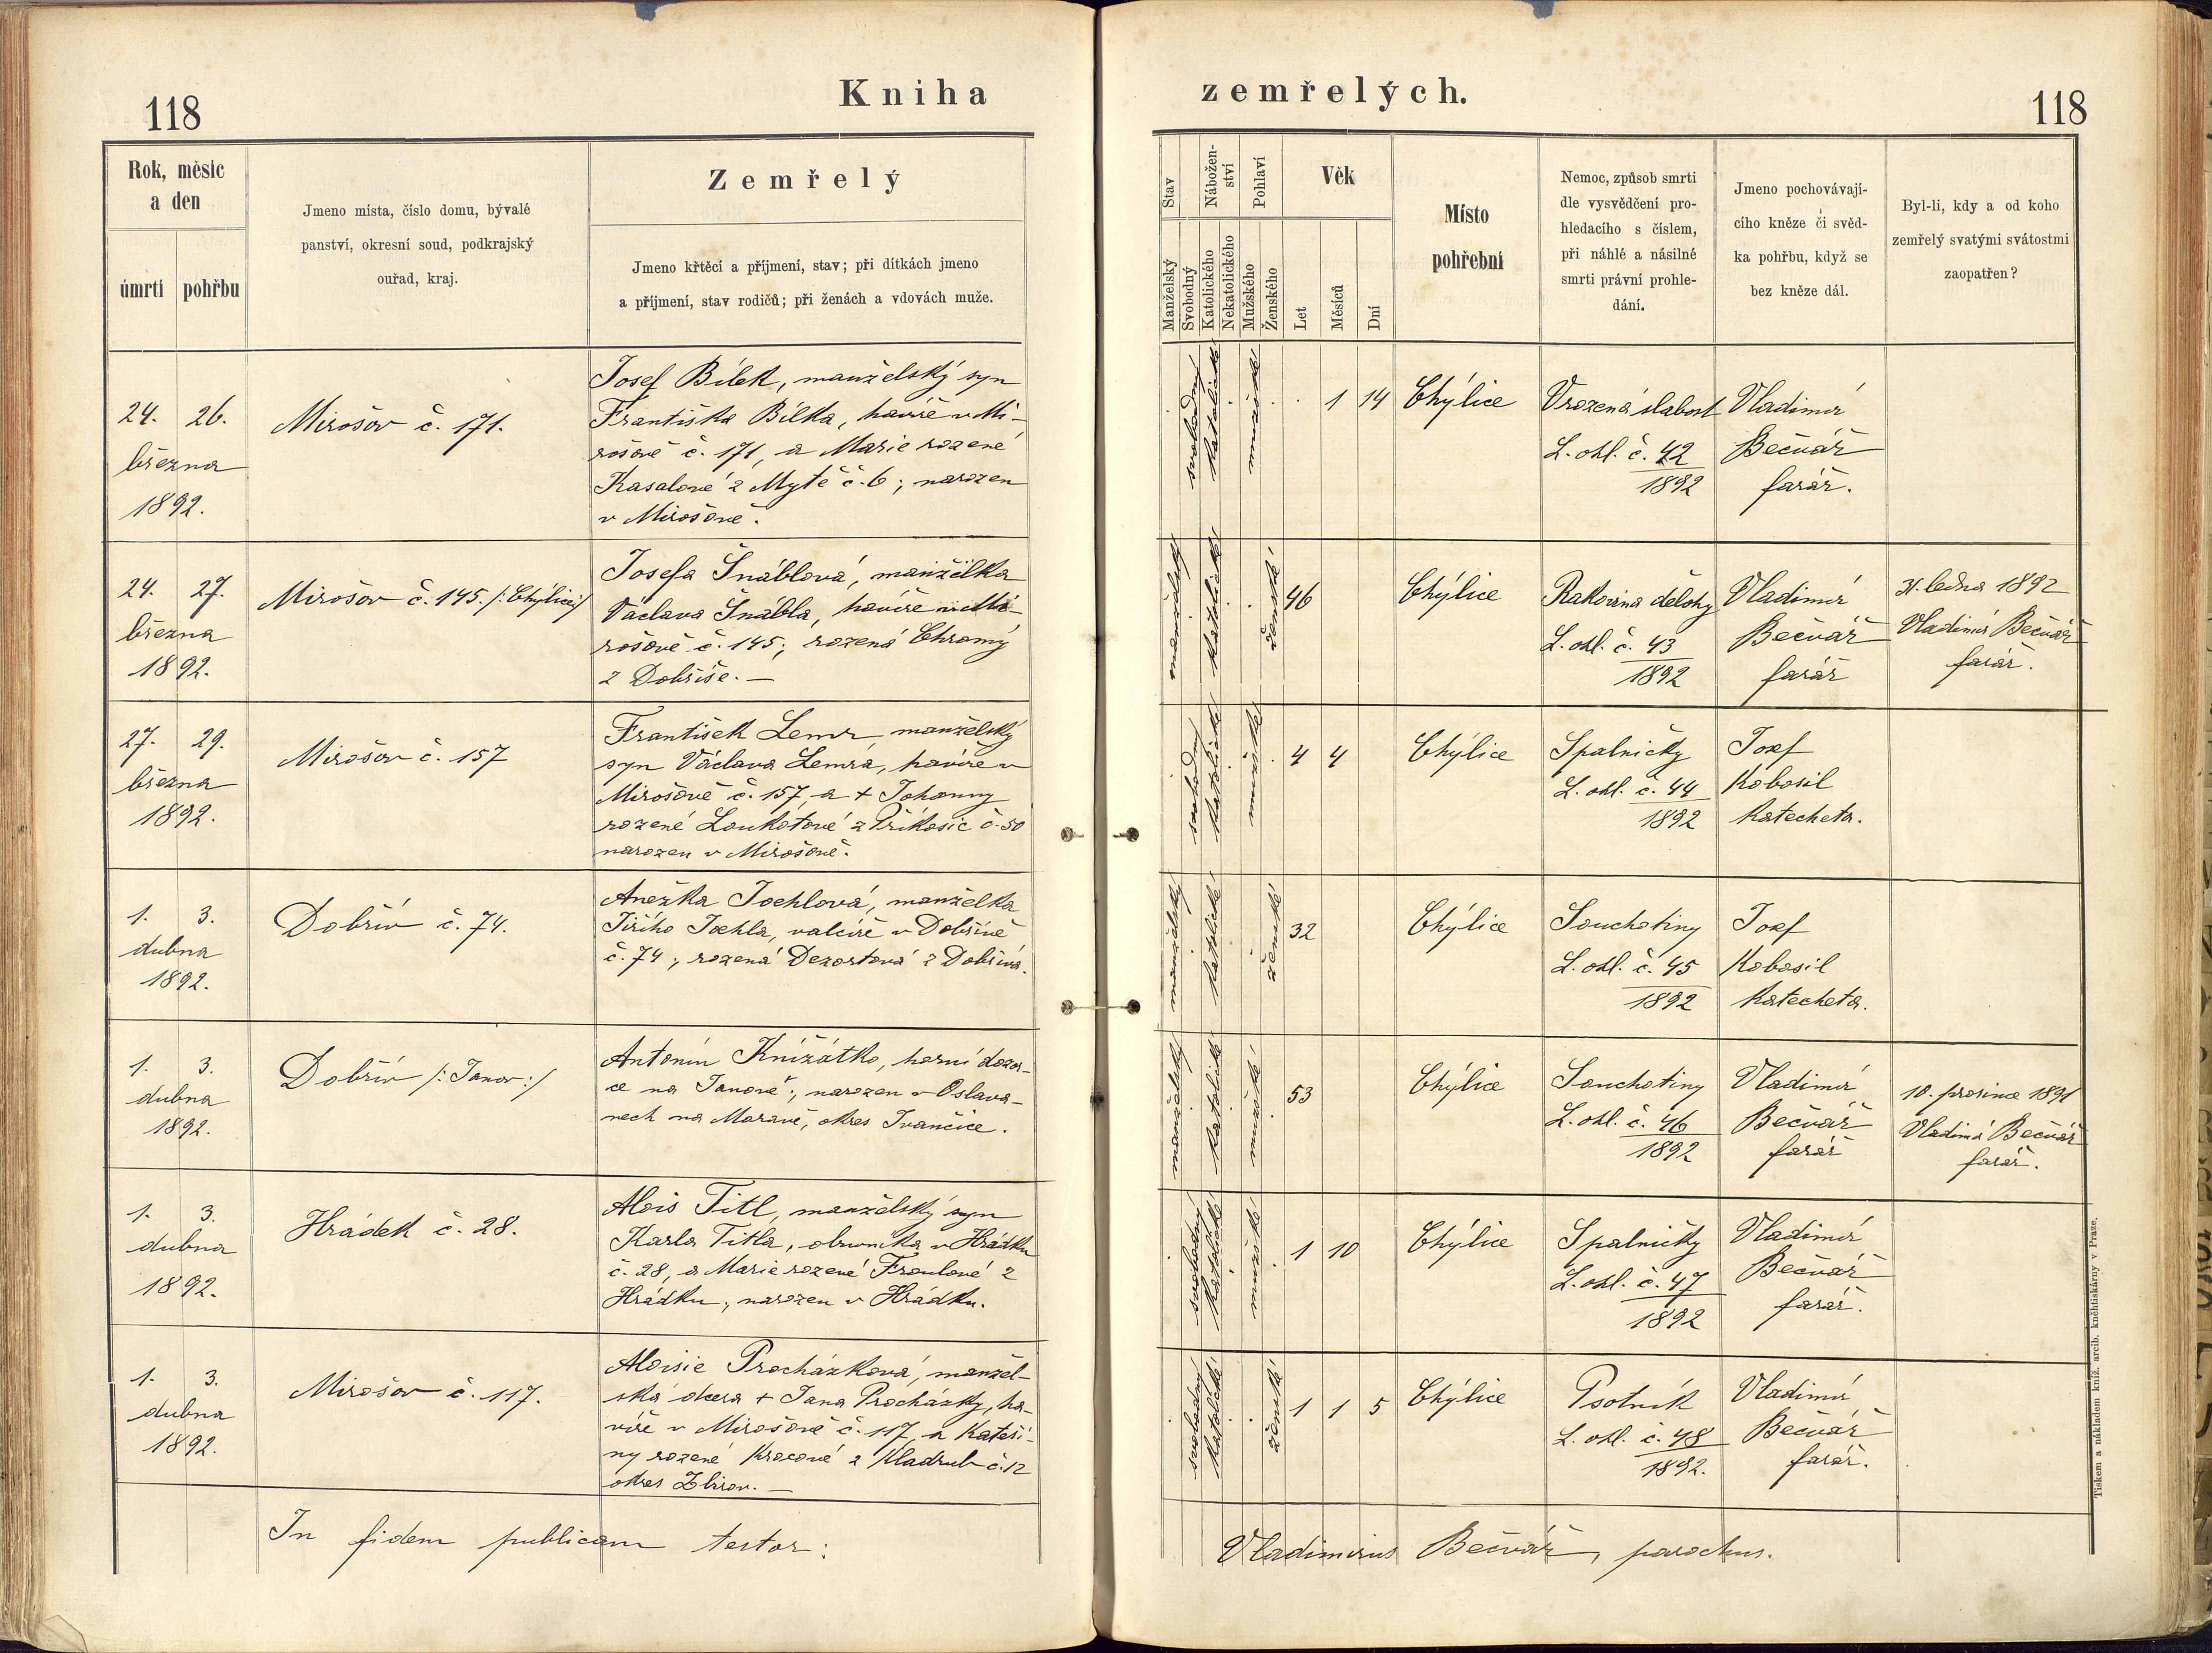 118
Kniha
Rok, měsíc
a den
úmrtí
pohřbu
Jmeno místa, číslo domu, bývalé
panství, okresní soud, podkrajský
ouřad, kraj.
Zemřelý
Jmeno křtěcí a příjmení, stav; při dítkách jmeno
a příjmení, stav rodičů; při ženách a vdovách muže.
24. 26.
března
1892.
Mirošov č. 171.
Josef Bílek, manželský syn
Františka Bílka, havíře v Mi-
rošově č. 171, a Marie rozené
Kasalové z Mýtě č. 6; narozen
v Mirošově.
24. 27.
března
1892.
Mirošov č. 145. /: Chýlice :/
Josefa Šnáblová, manželka
Václava Šnábla, havíře v Mi-
rošově č. 145; rozená Chromý
z Dobříše. —
27. 29.
března
1892.
Mirošov č. 157
František Lemr, manželský
syn Václava Lemra, havíře v
Mirošově č. 157, a + Johanny
rozené Loukotové z Příkosic č. 50
narozen v Mirošově.
1. 3.
dubna
1892.
Dobřív č. 74.
Anežka Jochlová, manželka
Jiřího Jochla, valcíře v Dobřívě
č. 74; rozená Dezortová z Dobříva.
1. 3.
dubna
1892.
Dobřív /: Janov :/
Antonín Knížátko, horní dozor-
ce na Janově; narozen v Oslava-
nech na Moravě, okres Ivančice.
1. 3.
dubna
1892.
Hrádek č. 28.
Alois Titl, manželský syn
Karla Titla, obuvníka v Hrádku
č. 28, a Marie rozené Froulové z
Hrádku; narozen v Hrádku.
1. 3.
dubna
1892.
Mirošov č. 117.
Aloisie Procházková, manžel-
ská dcera + Jana Procházky, ha-
víře v Mirošově č. 117, a Kateři-
ny rozené Krocové z Kladrub č. 12
okres Zbirov. —
In fidem publicam testor:
zemřelých.
118
Stav
Manželský
Svobodný
Nábožen-
ství
Katolického
Nekatolického
Pohlaví
Mužského
Ženského
Věk
Let
Měsíců
Dní
Místo
pohřební
Nemoc, způsob smrti
dle vysvědčení pro-
hledacího s číslem,
při náhlé a násilné
smrti právní prohle-
dání.
Jmeno pochovávají-
cího kněze či svěd-
ka pohřbu, když se
bez kněze dál.
Byl-li, kdy a od koho
zemřelý svatými svátostmi
zaopatřen?
svobodný katolické mužské 1 14 Chýlice
Vrozená slabost
L. ohl. č. 42
1892
Vladimír
Bečvář
farář.
manželský katolické ženské 46 Chýlice
Rakovina dělohy
L. ohl. č. 43
1892
Vladimír
Bečvář
farář
31. ledna 1892
Vladimír Bečvář
farář.
svobodný katolické mužské 4 4 Chýlice
Spalničky
L. ohl. č. 44
1892
Josef
Kobosil
katecheta.
manželský katolické ženské 32 Chýlice
Souchotiny
L. ohl. č. 45
1892
Josef
Kobosil
katecheta.
manželský katolické mužské 53 Chýlice
Souchotiny
L. ohl. č. 46
1892
Vladimír
Bečvář
farář
10. prosince 1891
Vladimír Bečvář
farář.
svobodný katolické mužské 1 10 Chýlice
Spalničky
L. ohl. č. 47
1892
Vladimír
Bečvář
farář.
svobodný katolické ženské 1 1 5 Chýlice
Psotník
L. ohl. č. 48
1892.
Vladimír
Bečvář
farář.
Vladimirus Bečvář, parochus.
Tiskem a nákladem kníž. arcib. kněhtiskárny v Praze.